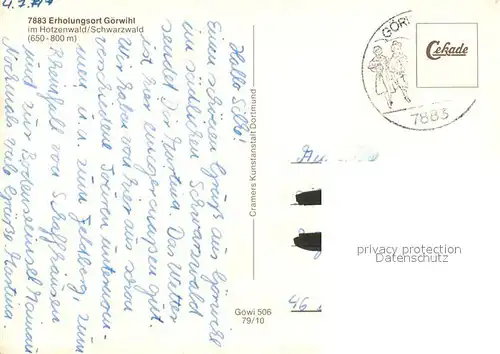 4.7.
7883 Erholungsort Görwihl
im Hotzenwald/Schwarzwald
(650-800 m)
Hallo Silke!
Einen schönen Gruß aus Görwihl
im südlichen Schwarzwald
sendet Dir Martina. Das Wetter
ist hier einigermaßen gut.
Wir haben von hier aus schon
verschiedene Touren unternom-
men u.a. zum Feldberg, zum
Rheinfall von Schaffhausen
und zur Bodenseeinsel Mainau
Nochmals viele Grüße Martina.
Cramers Kunstanstalt Dortmund
Göwi 506
79/10
GÖR
7883
Cekade
46
privacy protection
Datenschutz